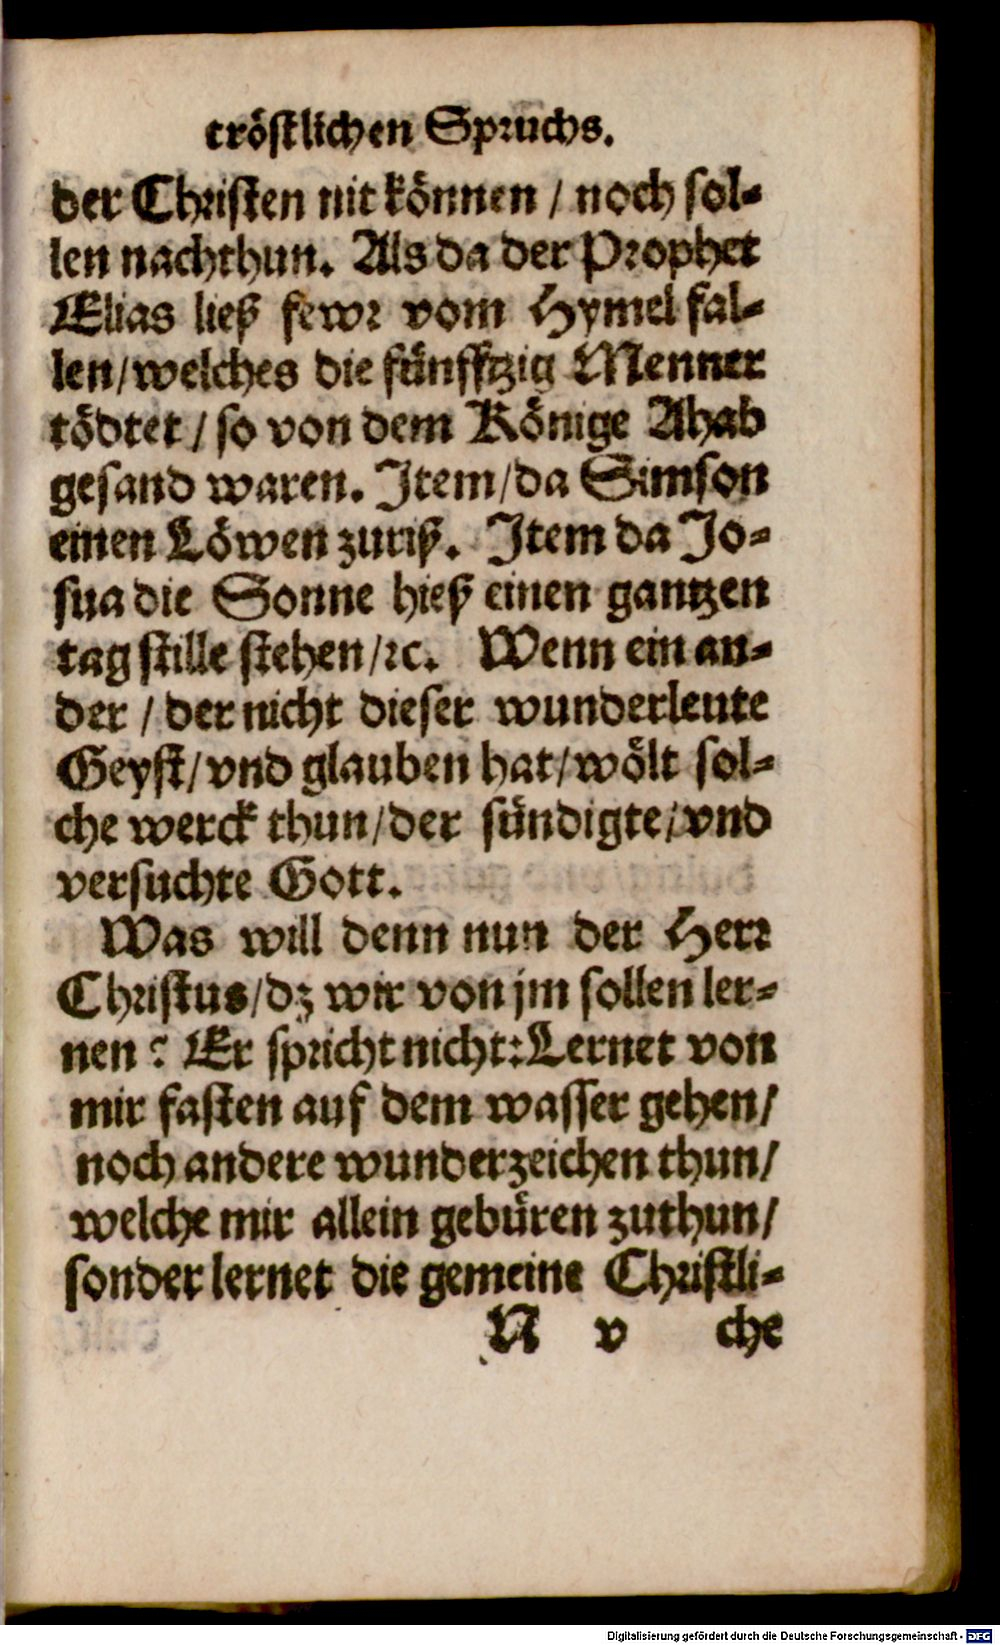 tröstlichen Spruchs.
der Christen nit können / noch sol⸗
len nachthun. Als da der Prophet
Elias ließ fewr vom Hymel fal⸗
len/welches die fünfftzig Menner
tödtet / so von dem Könige Ahab
gesand waren. Item/da Simson
einen Löwen zuriß. Item da Jo⸗
sua die Sonne hieß einen gantzen
tag stille stehen/ꝛc. Wenn ein an⸗
der / der nicht dieser wunderleute
Geyst/vnd glauben hat/wölt sol⸗
che werck thun/der sündigte/vnd
versuchte Gott.
Was will denn nun der Herr
Christus/dz wir von jm sollen ler⸗
nen? Er spricht nicht:Lernet von
mir fasten auf dem wasser gehen/
noch andere wunderzeichen thun/
welche mir allein gebüren zuthun/
sonder lernet die gemeine Christli⸗
N v che
Digitalisierung gefördert durch die Deutsche Forschungsgemeinschaft - DFG